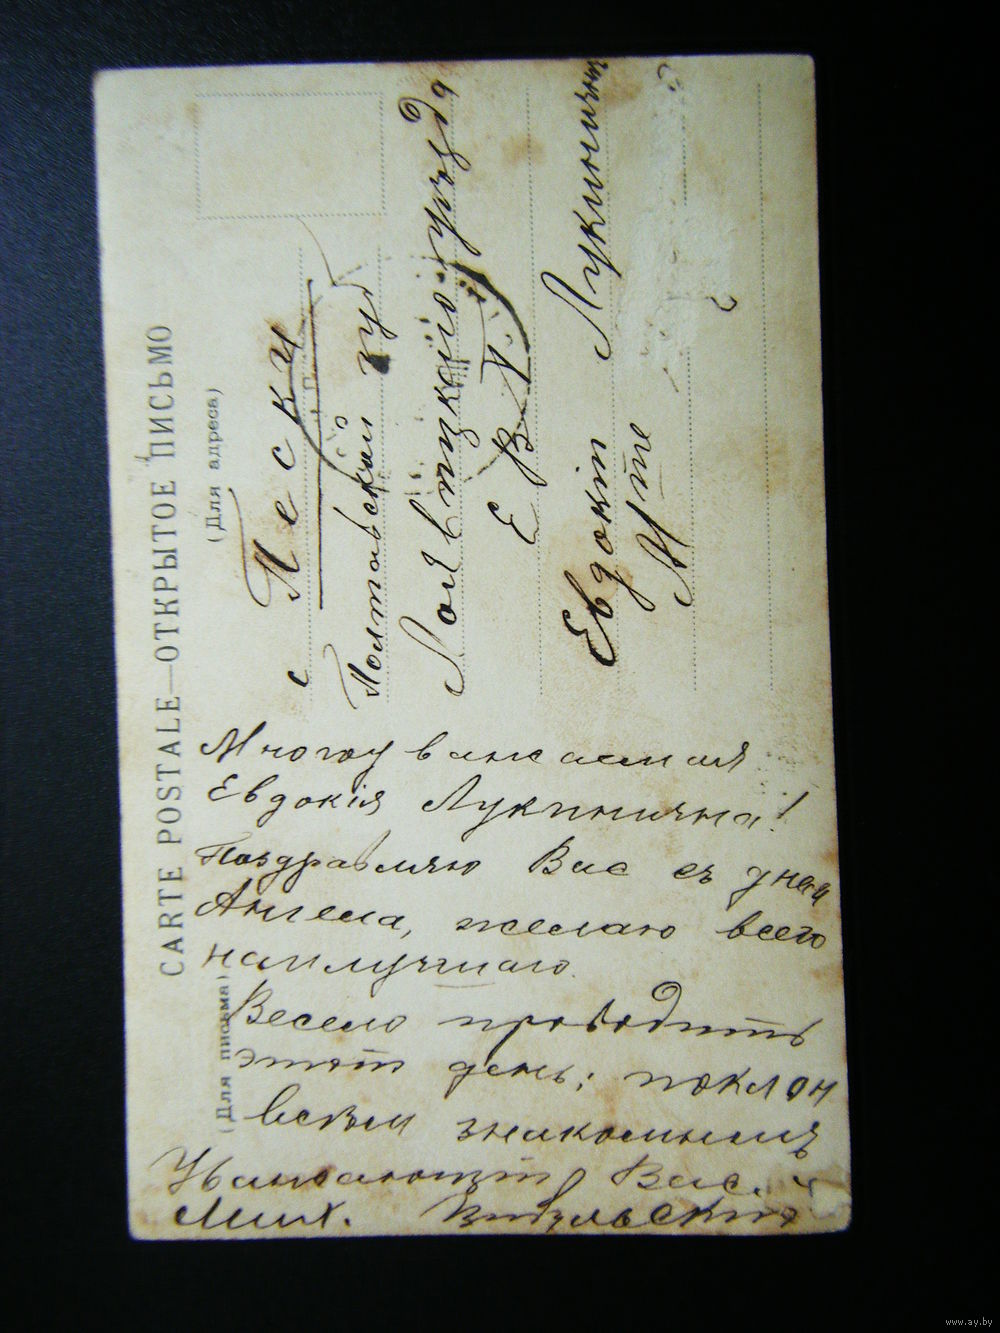 CARTE POSTALE—ОТКРЫТОЕ ПИСЬМО
(Для адреса)
с Пески
Полтавской гу
Лохвицкаго уѣзда
Е В Б.
Евдокіи Лукиничнѣ
(Для письма)
Многоуважаемая
Евдокія Лукинична!
Поздравляю Вас съ днем
Ангела, желаю всего
наилучшаго.
Весело проводить
этот день; поклон
всѣм знакомымъ
Уважающій Вас.
Мих.
www.ay.by